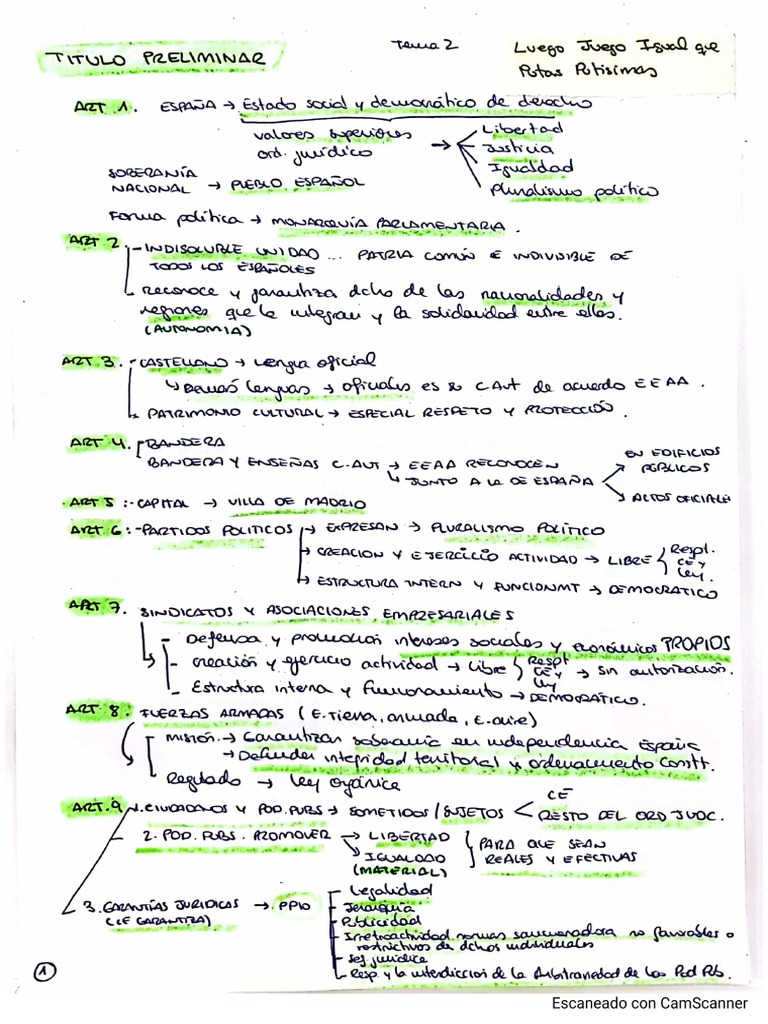 Tema 2
Luego Juego Igual que
Potas Potisimas
TITULO PRELIMINAR
ART 1. ESPAÑA → Estado social y democrático de derecho
valores superiores
ord. jurídico
→ Libertad
Justicia
Igualdad
Pluralismo político
SOBERANÍA
NACIONAL → PUEBLO ESPAÑOL
Forma política → MONARQUÍA PARLAMENTARIA.
ART 2 - INDISOLUBLE UNIDAD ... PATRIA COMÚN E INDIVISIBLE DE
TODOS LOS ESPAÑOLES
Reconoce y garantiza dcho de las nacionalidades y
regiones que la integran y la solidaridad entre ellas.
(AUTONOMIA)
ART 3. - CASTELLANO → Lengua oficial
↳ Demás lenguas → oficiales es su C.Aut de acuerdo EEAA.
- PATRIMONIO CULTURAL → ESPECIAL RESPETO Y PROTECCIÓN.
ART 4. BANDERA
BANDERA Y ENSEÑAS C.AUT → EEAA RECONOCEN
↳ JUNTO A LA DE ESPAÑA
EN EDIFICIOS
PÚBLICOS
ACTOS OFICIALES
ART 5: - CAPITAL → VILLA DE MADRID
ART 6: - PARTIDOS POLITICOS → EXPRESAN → PLURALISMO POLÍTICO
→ CREACION Y EJERCICIO ACTIVIDAD → LIBRE
Respt.
CE y
ley.
→ ESTRUCTURA INTERN Y FUNCIONMT → DEMOCRATICO
ART 7. SINDICATOS Y ASOCIACIONES EMPRESARIALES
- Defensa y promoción intereses sociales y económicos PROPIOS
- creación y ejercicio actividad → Libre
Respt
CE y
ley
→ sin autorización.
- Estructura interna y Funcionamiento → DEMOCRÁTICO.
ART 8. FUERZAS ARMADAS (E. Tierra, armada, E. aire)
MISIÓN. → Garantizan soberanía en independencia España
→ Defender integridad territorial y ordenamiento Constt.
Regulado → ley orgánica
ART. 9 1. CIUDADANOS Y POD. PUBS → SOMETIDOS / SUJETOS
CE
RESTO DEL ORD JUDC.
2. POD. PUBS. PROMOVER → LIBERTAD
IGUALDAD
(MATERIAL)
PARA QUE SEAN
REALES Y EFECTIVAS
3. GARANTÍAS JURIDICAS → PPIO
(CE GARANTIZA)
Legalidad
Jerarquía
Publicidad
Irretroactividad normas sancionadora no favorables o
restrictivos de dchos individuales
Seg. jurídica
Resp. y la interdicción de la Arbitrariedad de los Pod Pb.
1
Escaneado con CamScanner